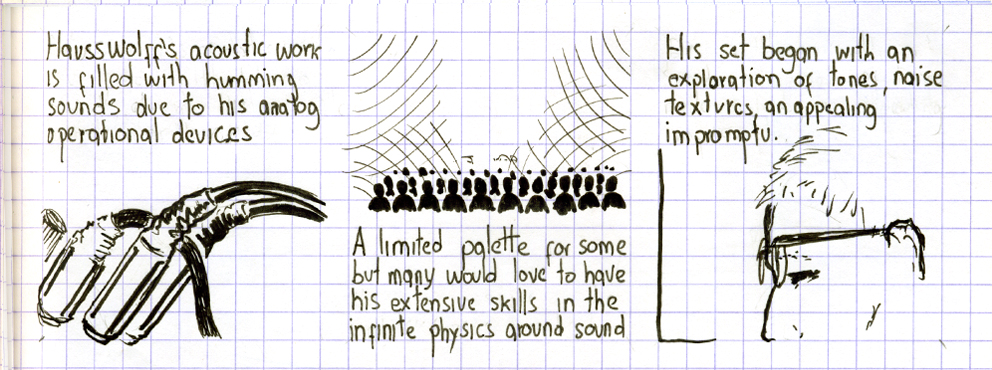 Hausswolff's acoustic work
is filled with humming
sounds due to his analog
operational devices
A limited palette for some
but many would love to have
his extensive skills in the
infinite physics around sound
His set began with an
exploration of tones, noise
textures, an appealing
impromptu.